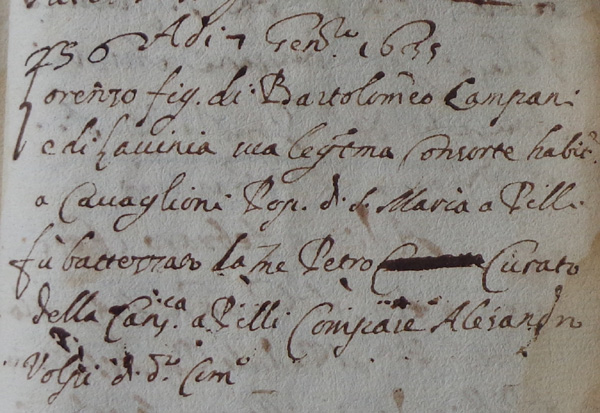 756 Adi 7 Gen.ro 1635
Lorenzo fig. di Bartolomeo Campani
e di Lavinia sua legitma Consorte habit.
a Cavaglioni Pop. di S. Maria a Pilli
fù battezzato da me Petro Curato
della Can.ica a Pilli Compare Alesandro
Volpi di d.o Com.o